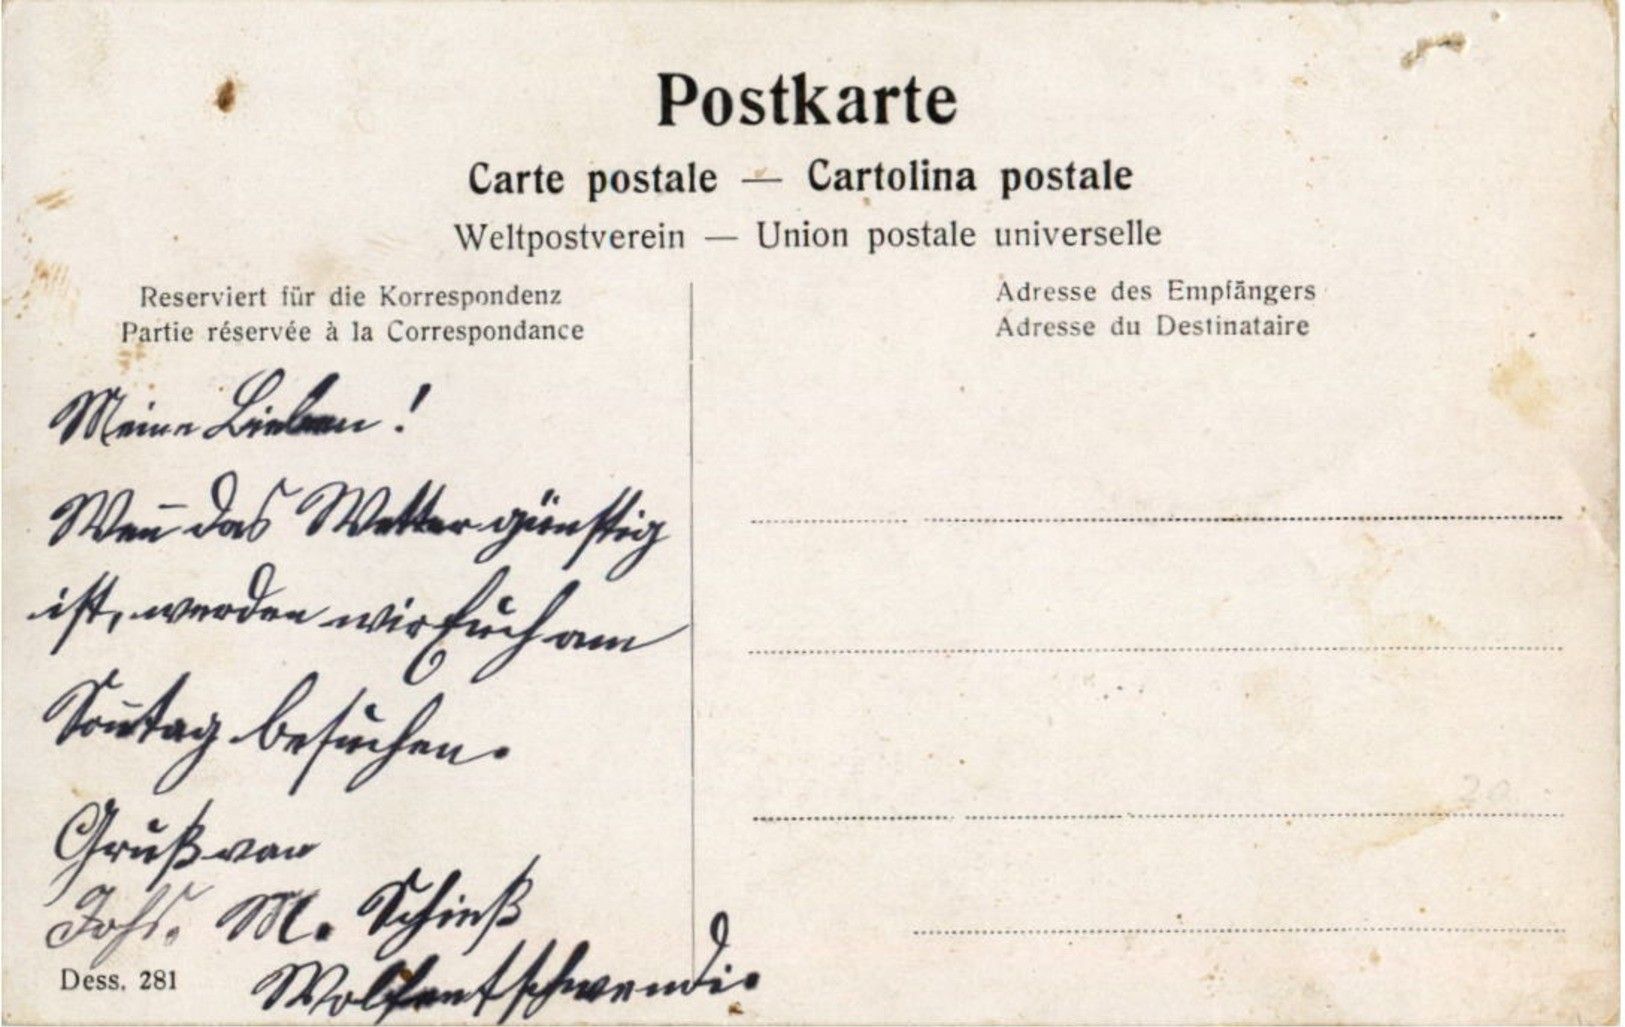 Postkarte
Carte postale — Cartolina postale
Weltpostverein — Union postale universelle
Reserviert für die Korrespondenz
Partie réservée à la Correspondance
Adresse des Empfängers
Adresse du Destinataire
Meine Lieben!
Weñ das Wetter günstig
ist, werden wir Euch am
Soñtag besuchen.
Gruß von
Johs. M. Schieß
Wolfentschwendi.
Dess. 281
20